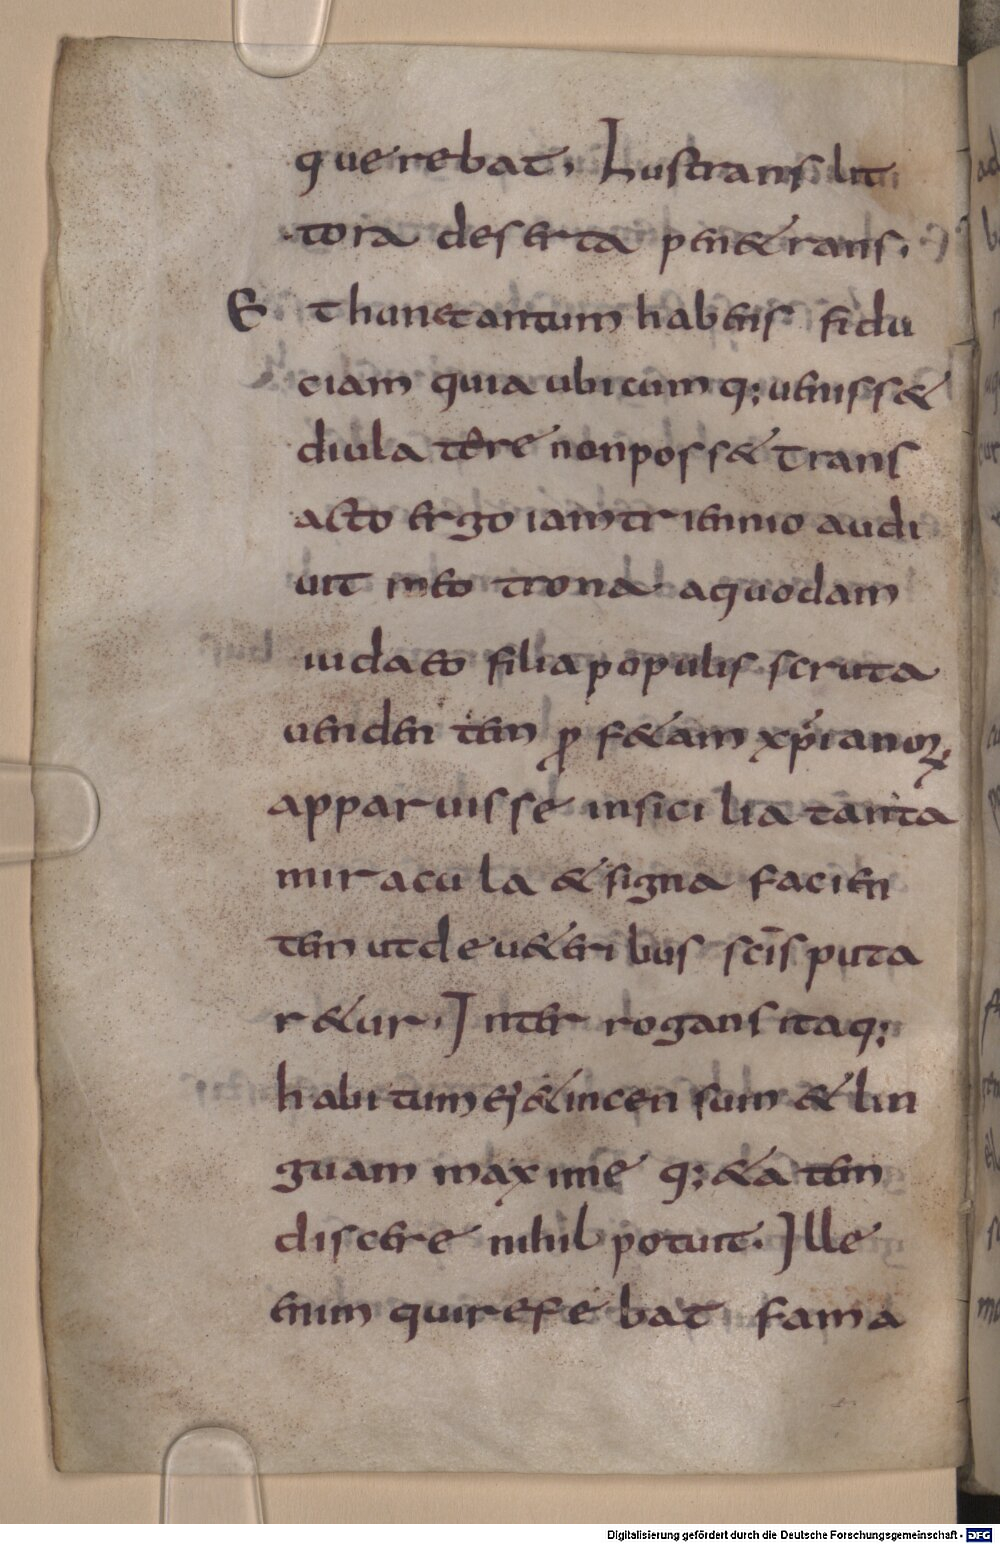 querebat, Lustrans lit
tora deserta pen&rans.
Et hunc tantum habens fidu
ciam quia ubicumq; ueniss&
diu latere non poss& Trans
acto ergo iam triennio audi
uit meto trona a quodam
iudaeo filia populis scruta
uendentem ꝓf&am xp̄ianoꝝ
apparuisse in sicilia tanta
miracula & signa facien
tem ut de u&eribus sc̄is puta
r&ur. Interrogans itaq;
habitum ej & incensum & lin
guam maxime q; &atem
discere nihil potuit. Ille
enim qui referebat fama
Digitalisierung gefördert durch die Deutsche Forschungsgemeinschaft - DFG